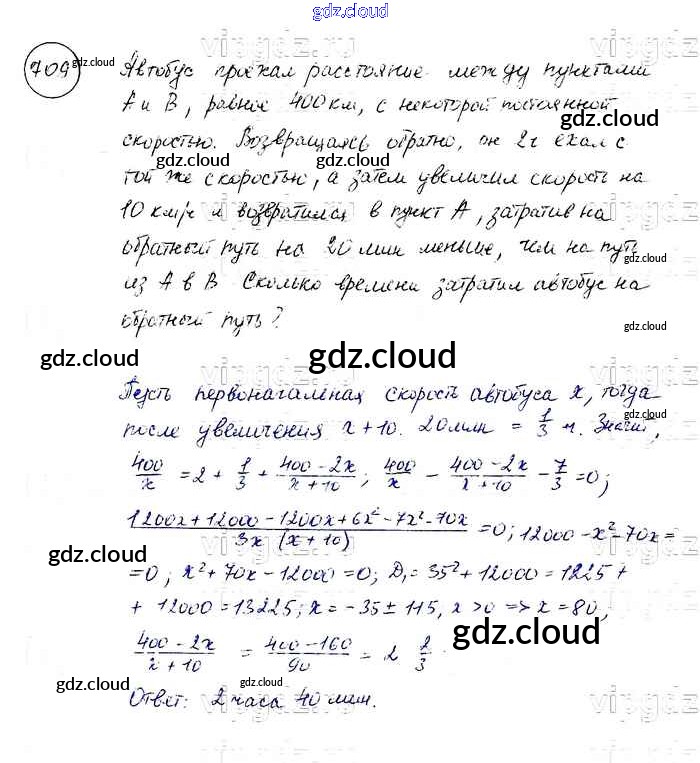 gdz.cloud
709
Автобус проехал расстояние между пунктами
А и В, равное 400 км, с некоторой постоянной
скоростью. Возвращаясь обратно, он 2 ч ехал с
той же скоростью, а затем увеличил скорость на
10 км/ч и возвратился в пункт А, затратив на
обратный путь на 20 мин меньше, чем на путь
из А в В. Сколько времени затратил автобус на
обратный путь?
Пусть первоначальная скорость автобуса x, тогда
после увеличения x + 10. 20 мин = 1/3 ч. Значит,
400/x = 2 + 1/3 + (400 - 2x)/(x + 10); 400/x - (400 - 2x)/(x + 10) - 7/3 = 0;
(1200x + 12000 - 1200x + 6x² - 7x² - 70x)/(3x (x + 10)) = 0; 12000 - x² - 70x =
= 0; x² + 70x - 12000 = 0; D₁ = 35² + 12000 = 1225 +
+ 12000 = 13225; x = -35 ± 115, x > 0 => x = 80,
(400 - 2x)/(x + 10) = (400 - 160)/90 = 2 2/3
Ответ: 2 часа 40 мин.